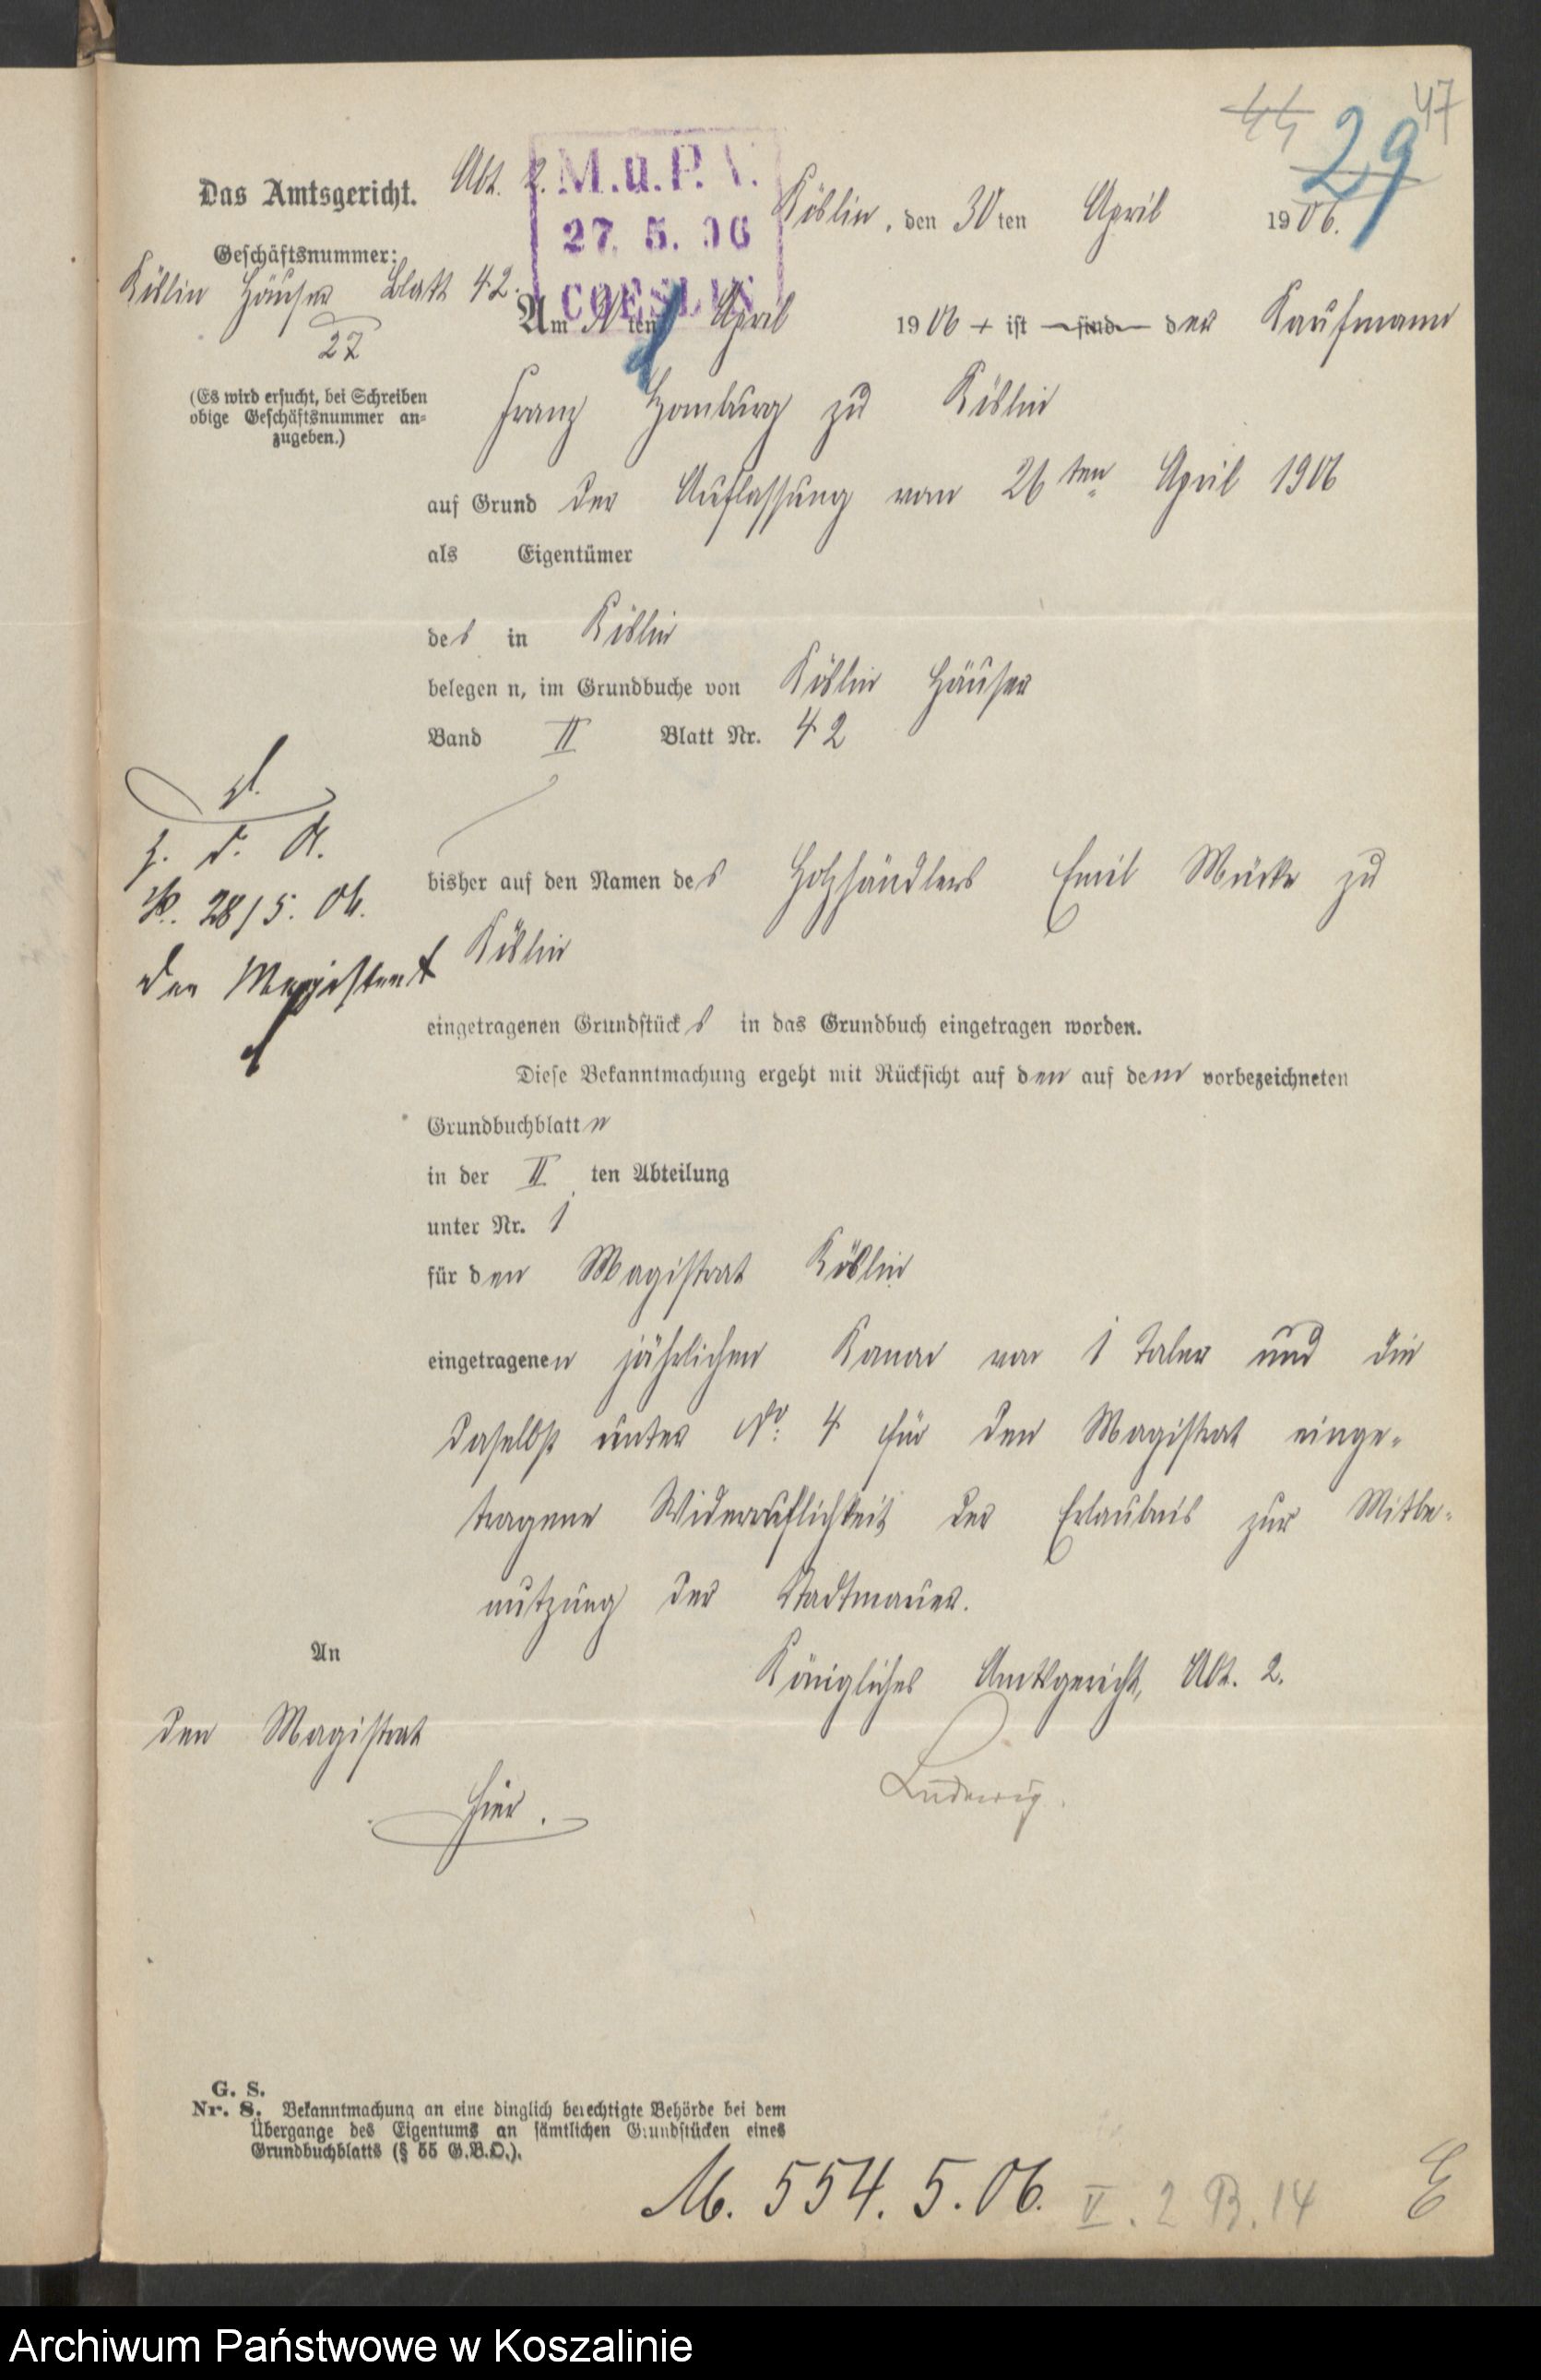 44 29 47
Das Amtsgericht. Abt. 2.
M. u. P. V.
27. 5. 06
COESLIN
Köslin, den 30ten April 1906.
Geschäftsnummer:
Köslin Häuser Blatt 42.
27
(Es wird ersucht, bei Schreiben
obige Geschäftsnummer an-
zugeben.)
Am 30ten April 1906 + ist sind der Kaufmann
Franz Homburg zu Köslin
auf Grund der Auflassung vom 26ten April 1906
als Eigentümer
des in Köslin
belegen n, im Grundbuche von Köslin Häuser
Band II Blatt Nr. 42
z. d. A.
K. 28/5. 06.
Der Magistrat
bisher auf den Namen des Holzhändlers Emil Mücke zu
Köslin
eingetragenen Grundstücks in das Grundbuch eingetragen worden.
Diese Bekanntmachung ergeht mit Rücksicht auf den auf dem vorbezeichneten
Grundbuchblatt
in der II ten Abteilung
unter Nr. 1
für den Magistrat Köslin
eingetragenen jährlichen Kanon von 1 Taler und die
daselbst unter No. 4 für den Magistrat einge-
tragene Widerruflichkeit der Erlaubnis zur Mitbe-
nutzung der Stadtmauer.
Königliches Amtsgericht, Abt. 2.
Ludewig.
An
den Magistrat
hier.
G. S.
Nr. 8. Bekanntmachung an eine dinglich berechtigte Behörde bei dem
Übergange des Eigentums an sämtlichen Grundstücken eines
Grundbuchblatts (§ 55 G.B.O.).
M. 554. 5. 06. V. 2 B. 14
Archiwum Państwowe w Koszalinie